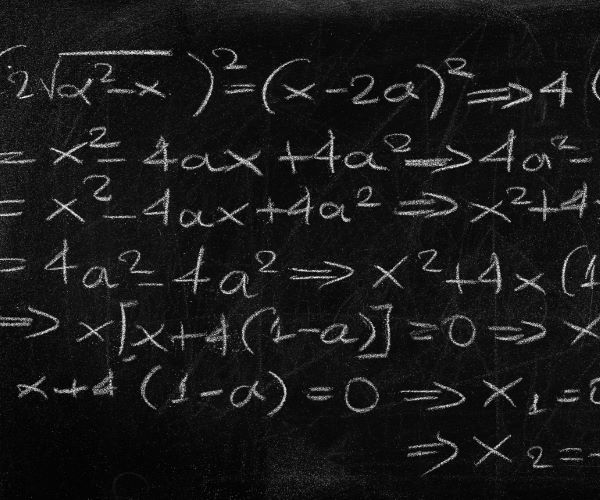 (2√a²-x)²=(x-2a)²⇒4(
= x²-4ax+4a²⇒4a²-
= x²-4ax+4a²⇒x²+4x
= 4a²-4a²⇒x²+4x(1
⇒ x[x+4(1-a)]=0⇒x
x+4(1-a)=0⇒x₁=
⇒x₂=-